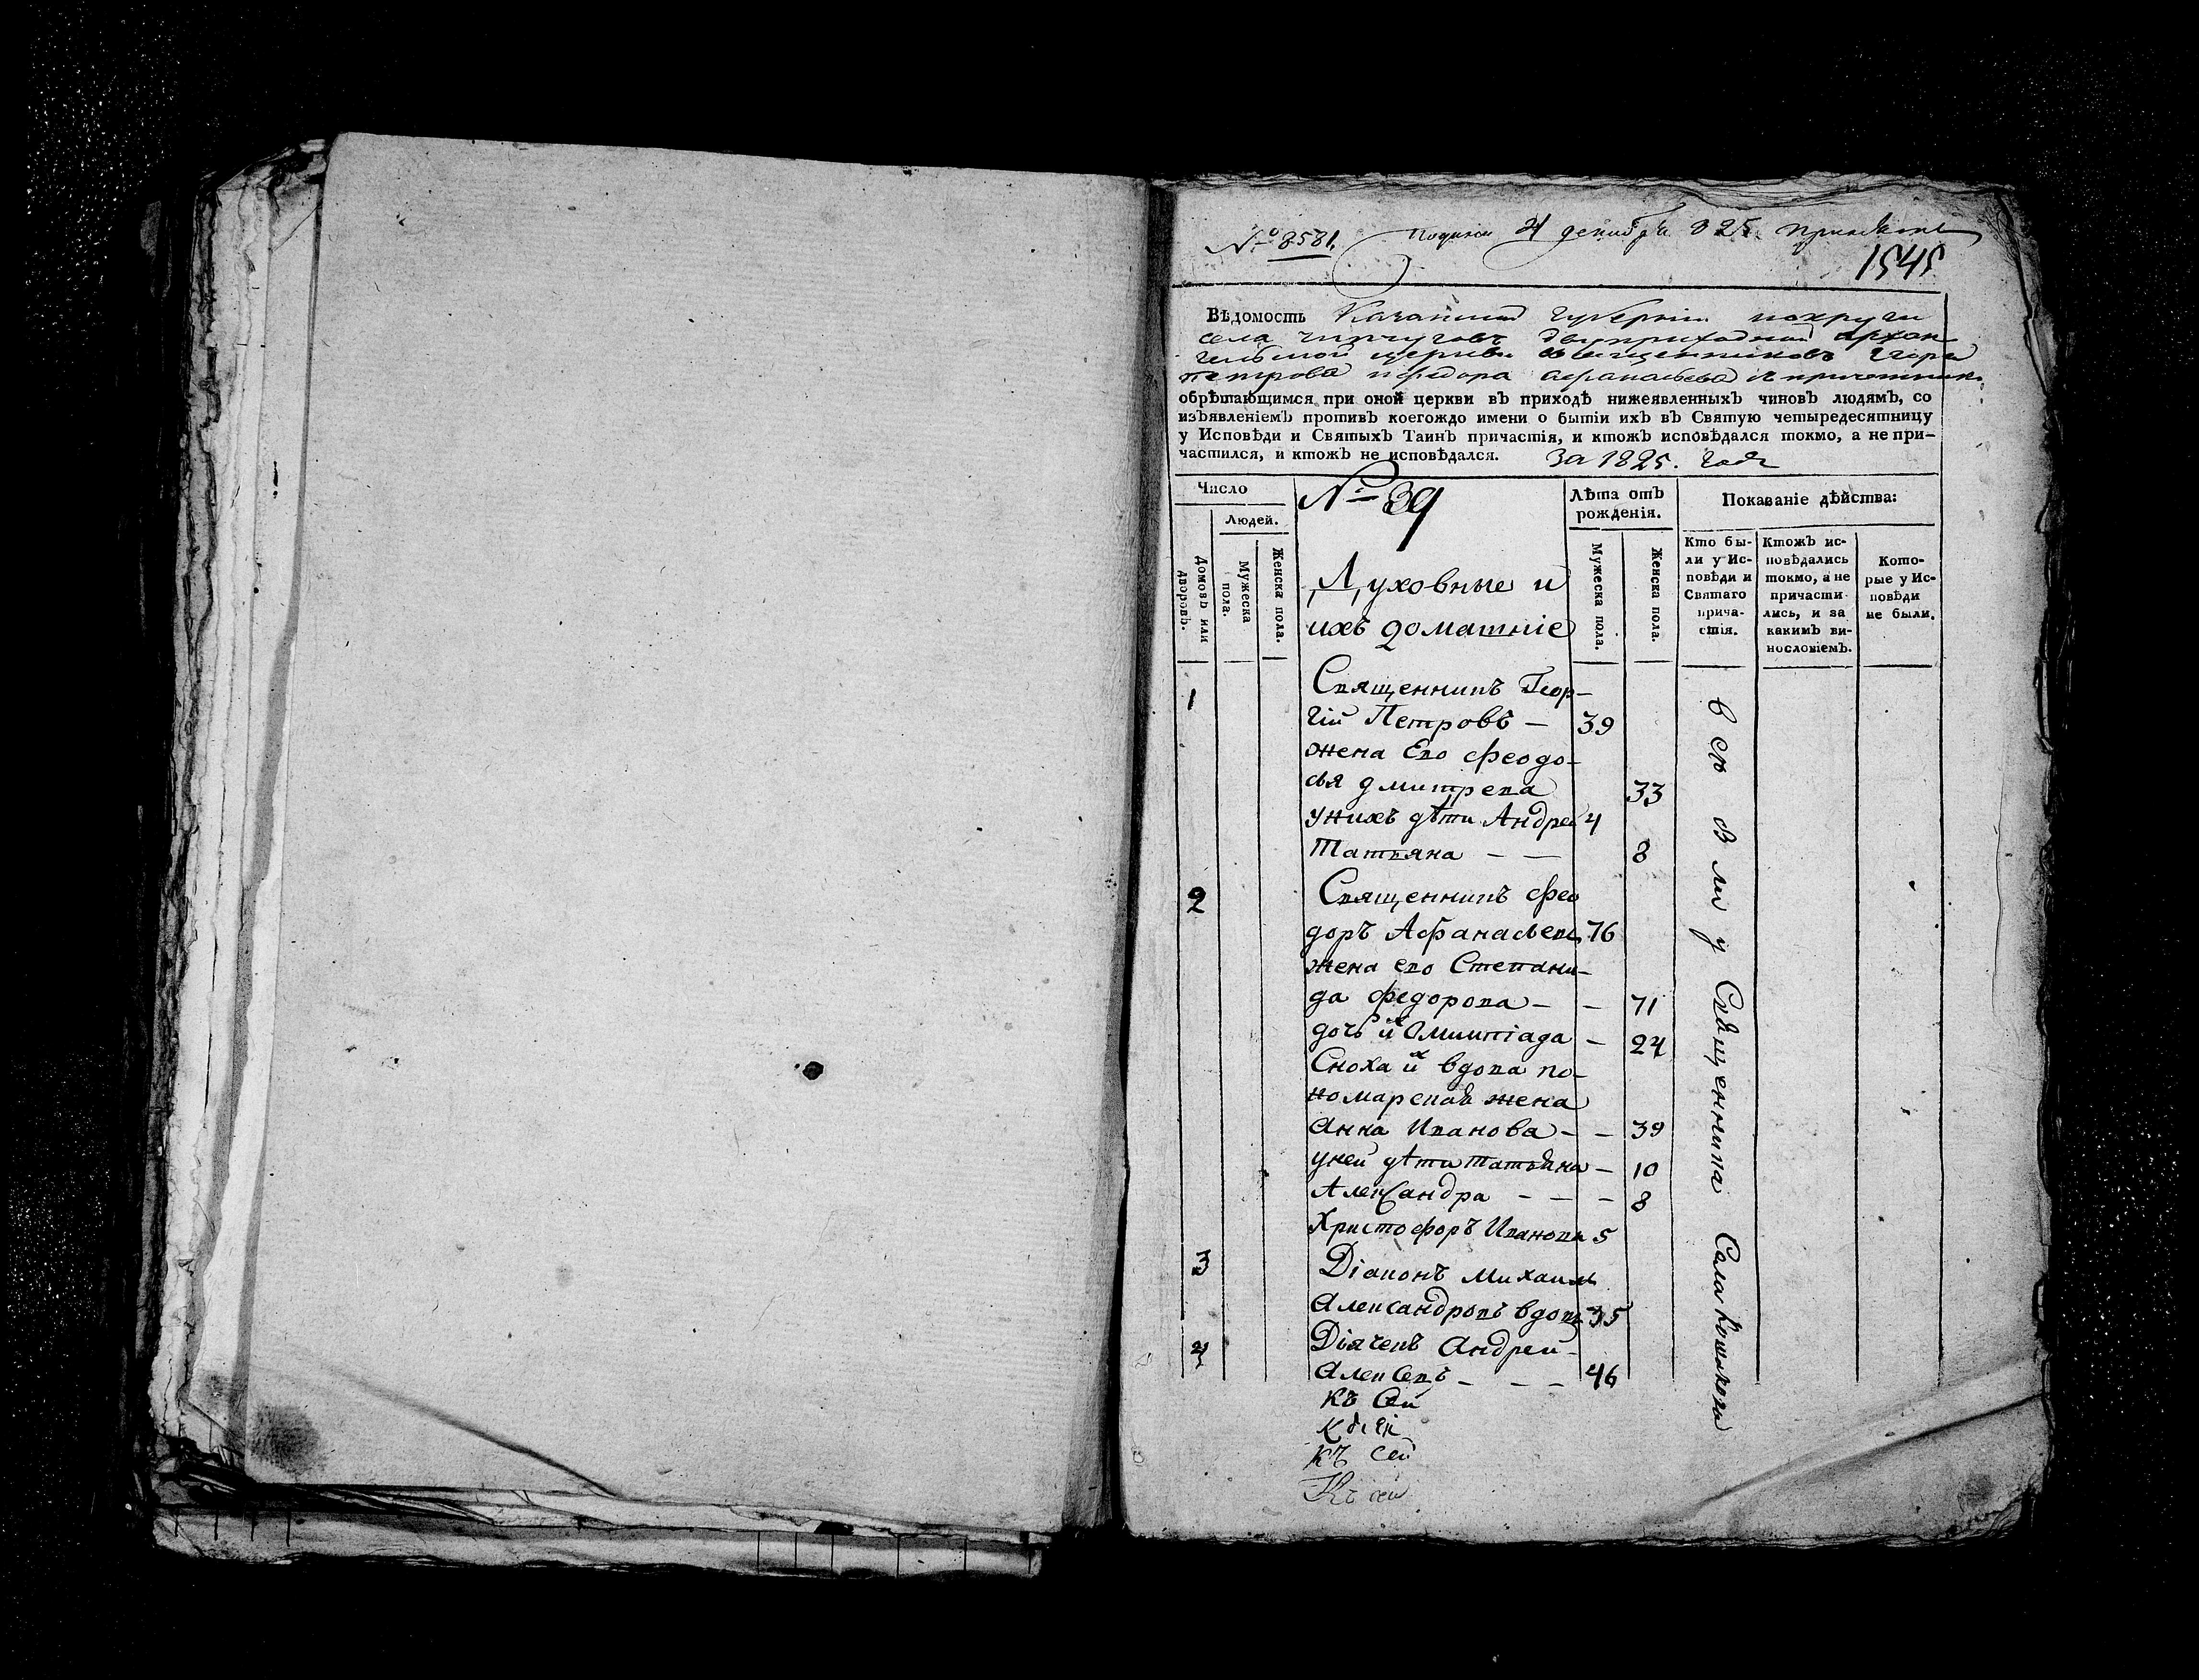 № 8581. 21 декабря 825.
1545
Вѣдомость Казанской губернiи
села Чипчуговъ двуприходной Архан
гельской церкви священниковъ Егора
Петрова и Федора Афанасьева
обрѣтающимся при оной церкви въ приходѣ нижеявленныхЪ чиновЪ людямЪ, со
изЪявленiемЪ противЪ коегождо имени о бытiи ихЪ вЪ Святую четыредесятницу
у Исповѣди и СвятыхЪ ТаинЪ причастiя, и ктожЪ исповѣдался токмо, а не при-
частился, и ктожЪ не исповѣдался. За 1825. годъ
Число
№ 39
Лѣта отЪ рожденiя.
Показанiе дѣйства:
Людей.
ДомовЪ или дворовЪ.
Мужеска пола.
Женска пола.
Мужеска пола.
Женска пола.
Кто бы-
ли у Ис-
повѣди и
Святаго
прича-
стiя.
КтожЪ ис-
повѣдались
токмо, а не
причасти
лись, и за
какимЪ ви-
нословiемЪ.
Кото-
рые у Ис-
повѣди
не были.
Духовные и
ихъ домашнiе
1 Священникъ Геор-
гiй Петровъ — 39
жена Его Феодо-
сья Дмитрева 33
у нихъ дѣти Андрей 4
Татьяна — — 8
2 Священникъ Фео
доръ Афанасьевъ 76
жена его Степани-
да Федорова — — 71
дочь их Олимпiада — 24
Сноха их вдова по-
номарская жена
Анна Иванова — — 39
у ней дѣти Татьяна — 10
Александра — — — 8
Христофоръ Ивановъ 5
3 Дiаконъ Михаилъ
Александровъ вдовъ 35
4 Дiячекъ Андрей
Алексевъ — — — 46
Къ сей
Къ сей
Къ сей
Къ сей
всѣ были у Священника Села